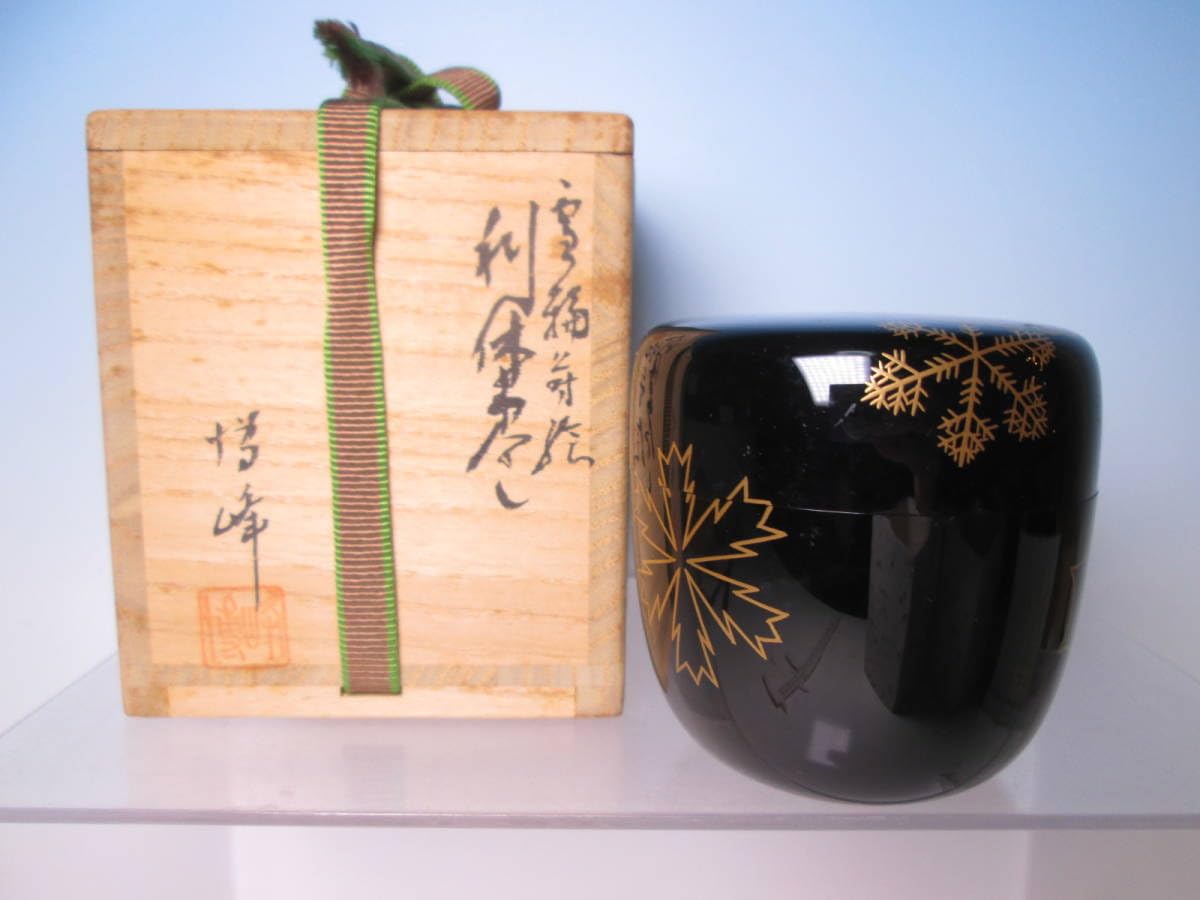 雪輪蒔絵
利休棗
博峰